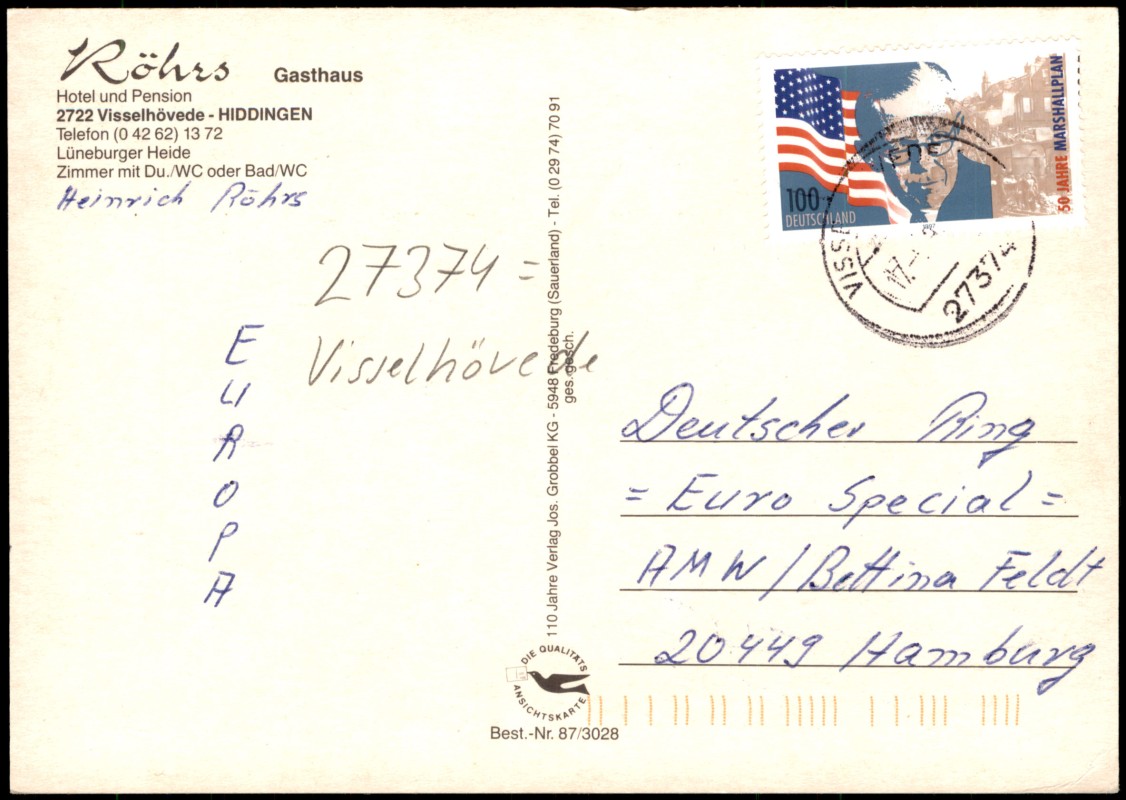 Röhrs Gasthaus
Hotel und Pension
2722 Visselhövede - HIDDINGEN
Telefon (0 42 62) 13 72
Lüneburger Heide
Zimmer mit Du./WC oder Bad/WC
Heinrich Röhrs
27374 =
Visselhövede
E
U
R
O
P
A
110 Jahre Verlag Jos. Grobbel KG - 5948 Fredeburg (Sauerland) - Tel. (0 29 74) 70 91
ges. gesch.
DIE QUALITÄTS
ANSICHTSKARTE
Best.-Nr. 87/3028
100
DEUTSCHLAND
1997
50 JAHRE MARSHALLPLAN
27374
Deutscher Ring
= Euro Special =
AMW / Bettina Feldt
20449 Hamburg